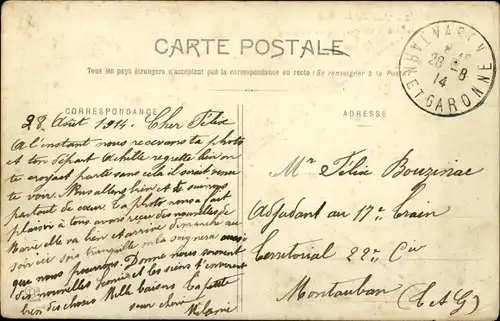 CARTE POSTALE
Tous les pays étrangers n'acceptent pas la correspondance au recto (Se renseigner à la Poste)
CORRESPONDANCE
ADRESSE
VAREN
28-8
14
TARN ET GARONNE
28 Août 1914. Cher Félix
A l'instant nous recevons ta photo
et ton départ Achille regrette bien on
te croyait parti sans cela il serait venu
te voir. Nous allons bien et te suivons
partout de cœur. La photo nous a fait
plaisir à tous, avons reçu des nouvelles de
Marie elle va bien et arrive dimanche au
soir ici sois tranquille on la soignera aussi
que nous pourrons. Donne nous souvent
des nouvelles et les siens t'envoient
bien des choses Mille baisers La petite
sœur chérie
Mélanie
Mr Félix Bouzinac
Adjudant au 17e Train
Territorial 22e Cie
Montauban (T & G)